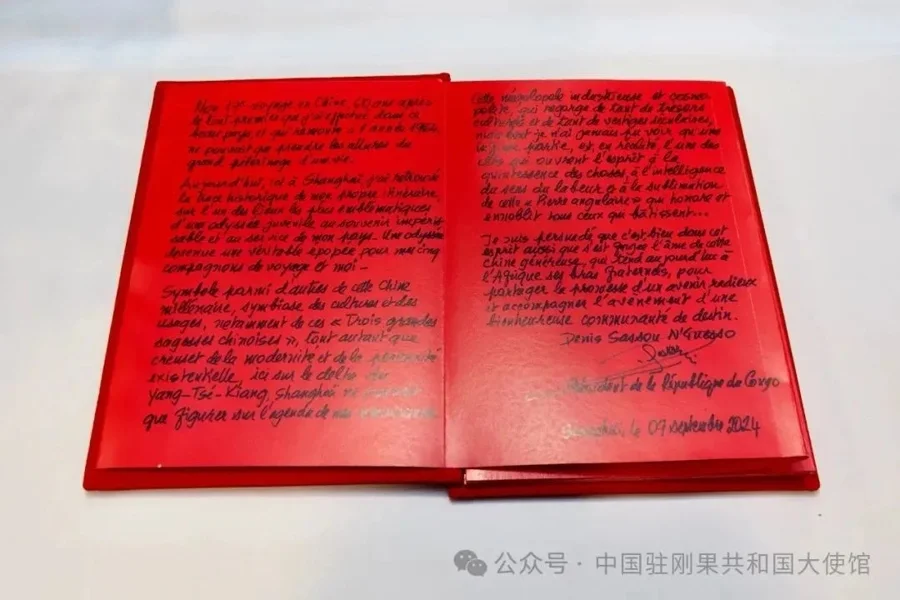 Mon 19e voyage en Chine 60 ans après
le tout premier que j'ai effectué dans ce
beau pays et qui remonte à l'année 1964,
ne pouvait que prendre les allures du
grand pèlerinage d'une vie.
Aujourd'hui, ici à Shanghai, j'ai retrouvé
la trace historique de mon propre itinéraire,
sur l'un des lieux les plus emblématiques
d'une odyssée juvenile au souvenir imperis-
sable et au service de mon pays. Une odyssée
devenue une véritable épopée pour mes cinq
compagnons de voyage et moi -
Symbole parmi d'autres de cette Chine
millénaire, symbiose des cultures et des
usages, notamment de ces « Trois grandes
sagesses chinoises », tout autant que
creuset de la modernité et de la
existentielle, ici sur le delta du
Yang-Tsé-Kiang, Shanghai ne
que figurer sur l'agenda de
Cette mégalopole industrieuse et cosmo-
polite, qui regorge de tant de trésors
culturels et de tant de vestiges séculaires,
mais dont je n'ai jamais pu voir qu'une
infime partie, est, en réalité, l'une des
clés qui ouvrent l'esprit à la
quintessence des choses, à l'intelligence
du sens du labeur et à la sublimation
de cette « Pierre angulaire » qui honore et
ennoblit tous ceux qui bâtissent...
Je suis persuadé que c'est bien dans cet
esprit aussi que s'est l'âme de cette
Chine généreuse, qui tend aujourd'hui à
l'Afrique ses bras fraternels, pour
partager la promesse d'un avenir radieux
et accompagner l'avènement d'une
bienheureuse communauté de destin.
Denis Sassou N'Guesso
Président de la République du Congo
Shanghai, le 09 septembre 2024
公众号·中国驻刚果共和国大使馆